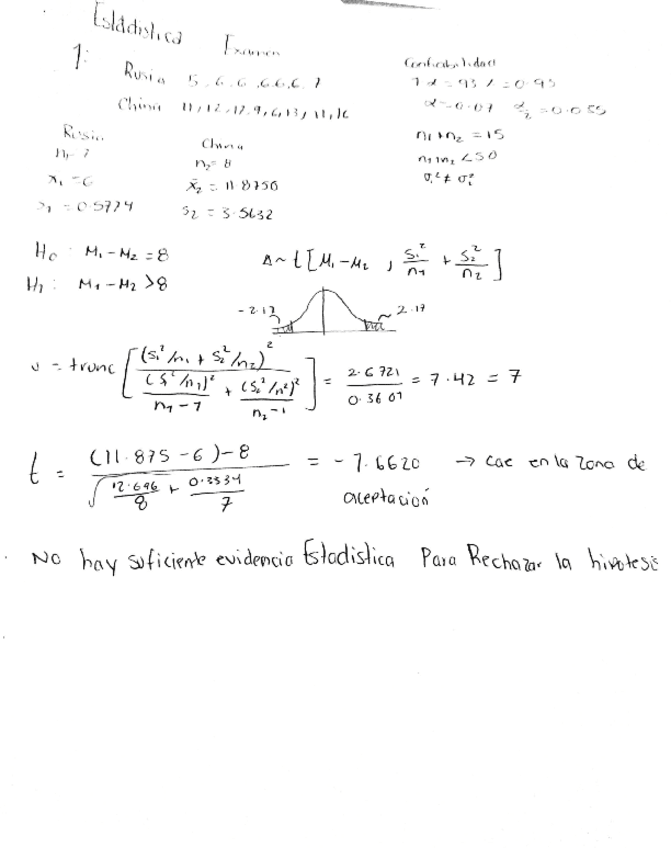 Estadistica Examen
1:
Rusia 5, 6, 6, 6, 6, 6, 7
China 11, 12, 12, 9, 6, 13, 11, 16
Confiabilidad
1-α = 93% = 0.93
n1+n2 = 15
n1 n2 < 50
σ1² ≠ σ2²
Rusia
n1= 7
x1 = 6
s1 = 0.5774
China
n2= 8
x̄2 = 11.8750
s2 = 3.5632
Ho : M1 - M2 = 8
H1 : M1 - M2 > 8
Δ ~ t [M1 - M2 , S1²/n1 + S2²/n2]
-2.17 2.17
υ = trunc [(S1²/n1 + S2²/n2)² / ((S1²/n1)²/(n1-1) + (S2²/n2)²/(n2-1))] = 2.6721/0.3601 = 7.42 = 7
t = ((11.875 - 6) - 8) / √(12.696/8 + 0.3334/7) = -1.6620 → cae en la zona de
aceptación
No hay suficiente evidencia Estadistica Para Rechazar la hipotesis